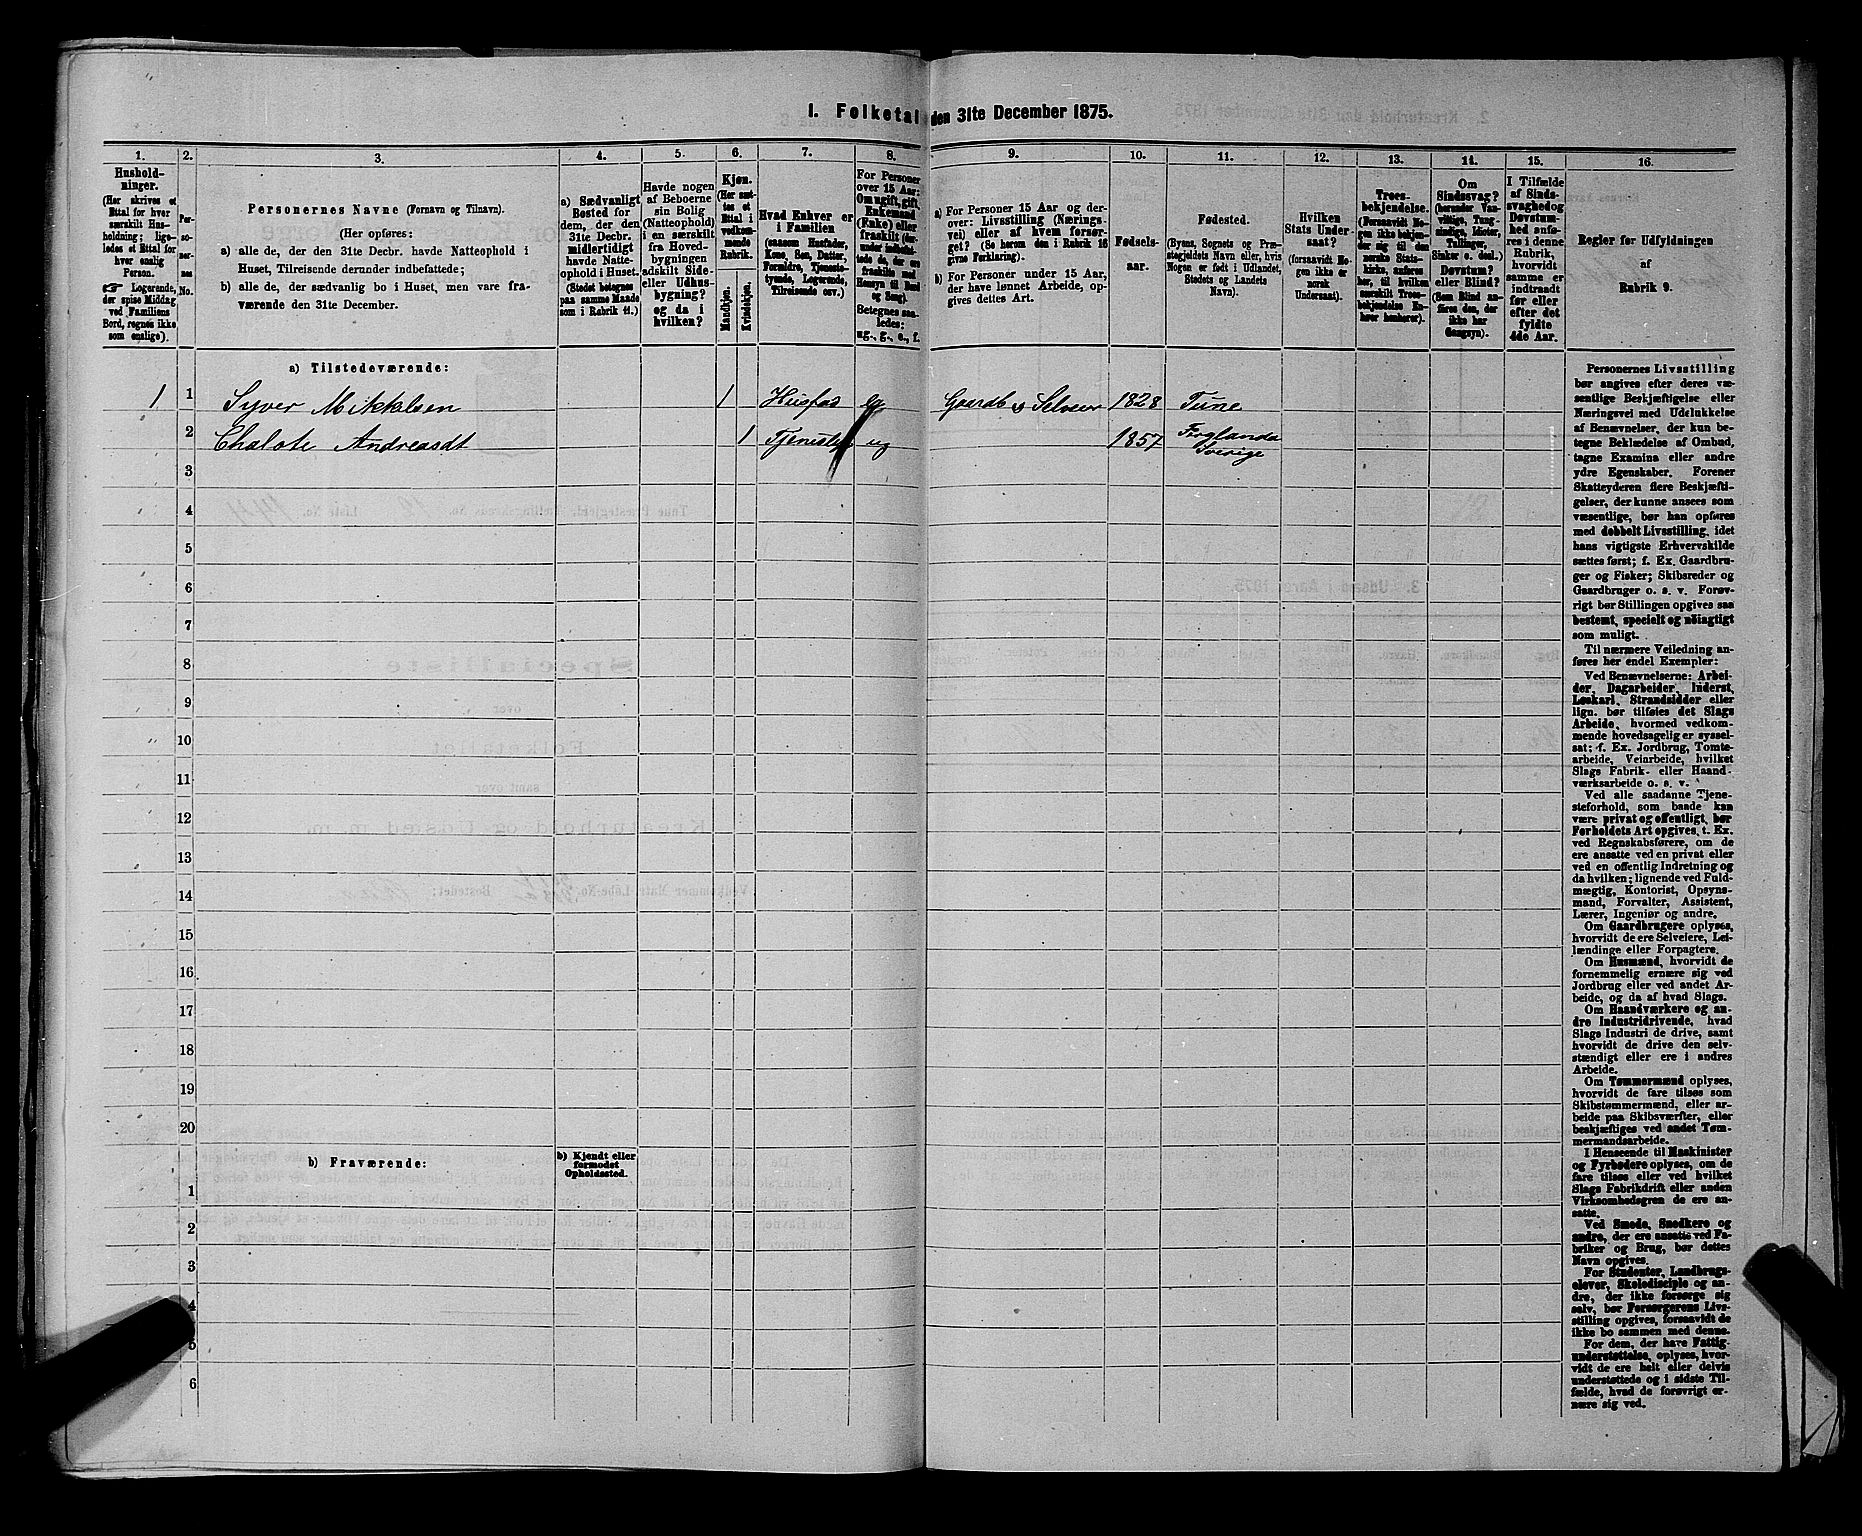 1. Folketal den 31te December 1875.
1. 2. 3. 4. 5. 6. 7. 8. 9. 10. 11. 12. 13. 14. 15. 16.
Hushold-
ninger.
(Her skrives et
Ettal for hver
særskilt Hus-
holdning; lige-
ledes et Ettal for
hver enslig
Person.
☞ Logerende,
der spise Middag
ved Familiens
Bord, regnes ikke
som enslige).
Per-
so-
ner-
nes
No.
Personernes Navne (Fornavn og Tilnavn).
(Her opføres:
a) alle de, der den 31te Decbr. havde Natteophold i
Huset, Tilreisende derunder indbefattede;
b) alle de, der sædvanlig bo i Huset, men vare fra-
værende den 31te December.
a) Sædvanligt
Bosted for
dem, der den
31te Decbr.
midlertidigt
havde Natte-
ophold i Huset.
(Stedet betegnes
paa samme Maade
som i Rubrik 11.)
Havde nogen
af Beboerne
sin Bolig
(Natteophold)
i en særskilt
fra Hoved-
bygningen
adskilt Side-
eller Udhus-
bygning?
og da i
hvilken?
Kjøn.
(Her sæt-
tes et
Ettal i
vedkom-
mende
Rubrik.
Mandkjøn.
Kvindekjøn.
Hvad Enhver er
i Familien
(saasom Husfader,
Kone, Søn, Datter,
Forældre, Tjeneste-
tyende, Logerende,
Tilreisende osv.)
For Personer
over 15 Aar:
Om ugift, gift,
Enkemand
(Enke) eller
fraskilt (der-
under indbefat-
tede de, der ere
fraskilte med
Hensyn til Bord
og Seng).
Betegnes saa-
ledes:
ug., g., e., f.
a) For Personer 15 Aar og der-
over: Livsstilling (Nærings-
vei) eller af hvem forsør-
get? (Se herom den i Rubrik 16
givne Forklaring).
b) For Personer under 15 Aar,
der have lønnet Arbeide, op-
gives dettes Art.
Fødsels-
aar.
Fødested.
(Byens, Sognets og Præ-
stegjeldets Navn eller, hvis
Nogen er født i Udlandet,
Stedets og Landets
Navn).
Hvilken
Stats Under-
saat?
(forsaavidt No-
gen ikke er
norsk
Undersaat).
Troes-
bekjendelse.
(Forsaavidt No-
gen ikke bekjen-
der sig til den
norske Stats-
kirke, anføres
her, til hvilken
særskilt Troes-
bekjendelse En-
hver henhører).
Om
Sindssvag?
(herunder Van-
vittige, Tung-
sindige, Idioter,
Tullinger,
Sinker o. desl.)
Døvstum?
eller Blind?
(Som Blind an-
føres den, der
ikke har
Gangsyn).
I Tilfælde
af Sinds-
svaghed og
Døvstum-
hed anfø-
res i denne
Rubrik,
hvorvidt
samme er
indtraadt
før eller
efter det
fyldte
4de Aar.
Regler for Udfyldningen
af
Rubrik 9.
a) Tilstedeværende:
1 1 Syver Mikkelsen 1 Husfad eg Gaardb og Selveier 1828 Tune
2 Chalote Andreasdt 1 ug 1857 Ferglanda
Sverige
3
4
5
6
7
8
9
10
11
12
13
14
15
16
17
18
19
20
b) Fraværende:
b) Kjendt eller
formodet
Opholdssted.
1
2
3
4
5
6
Personernes Livsstilling
bør angives efter deres væ-
sentlige Beskjæftigelse eller
Næringsvei med Udelukkelse
af Benævnelser, der kun be-
tegne Beklædelse af Ombud,
tagne Examina eller andre
ydre Egenskaber. Forener
Skatteyderen flere Beskjæfti-
gelser, der kunne ansees som
væsentlige, bør han opføres
med dobbelt Livsstilling, idet
hans vigtigste Erhvervskilde
sættes først; f. Ex. Gaardbru-
ger og Fisker; Skibsreder og
Gaardbruger o. s. v. Forøv-
rigt bør Stillingen opgives saa
bestemt, specielt og nøiagtigt
som muligt.
Til nærmere Veiledning an-
føres her endel Exempler:
Ved Benævnelserne: Arbei-
der, Dagarbeider, Inderst,
Løskarl, Strandsidder eller
lign. bør tilføies det Slags
Arbeide, hvormed vedkom-
mende hovedsagelig er syssel-
sat; f. Ex. Jordbrug, Tomte-
arbeide, Veiarbeide, hvilket
Slags Fabrik- eller Haand-
værksarbeide o. s. v.
Ved alle saadanne Tjene-
steforhold, som baade kan
være privat og offentligt, bør
Forholdets Art opgives, t. Ex.
ved Regnskabsførere, om de
ere ansatte ved en privat eller
ved en offentlig Indretning og
da hvilken; lignende ved Fuld-
mægtig, Kontorist, Opsyns-
mand, Forvalter, Assistent,
Lærer, Ingeniør og andre.
Om Gaardbrugere oplyses,
hvorvidt de ere Selveiere, Lei-
lændinge eller Forpagtere.
Om Husmænd, hvorvidt de
fornemmelig ernære sig ved
Jordbrug eller ved andet Ar-
beide, og da af hvad Slags.
Om Haandværkere og an-
dre Industridrivende, hvad
Slags Industri de drive, samt
hvorvidt de drive den selv-
stændigt eller ere i andres
Arbeide.
Om Tømmermænd oplyses,
hvorvidt de fare tilsøs som
Skibstømmermænd, eller ar-
beide paa Skibsværfter, eller
beskjæftiges ved andet Tøm-
mermandsarbeide.
I Henseende til Maskinister
og Fyrbødere oplyses, om de
fare tilsøs eller ved hvilket
Slags Fabrikdrift eller anden
Virksomhedsgren de ere an-
satte.
Ved Smede, Snedkere og
andre, der ere ansatte ved Fa-
briker og Brug, bør dettes
Navn opgives.
For Studenter, Landbrugs-
elever, Skoledisciple og an-
dre, der ikke forsørge sig
selv, bør Forsørgerens Livs-
stilling opgives, forsaavidt de
ikke bo sammen med denne.
For dem, der have Fattig-
understøttelse, oplyses, hvor-
vidt de ere helt eller delvis
understøttede og i sidste Til-
fælde, hvad de forøvrigt er-
nære sig ved.